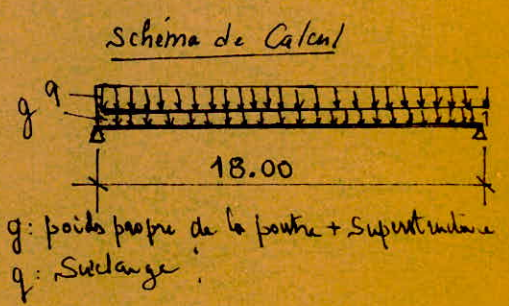 Schéma de Calcul
q
g
18.00
g: poids propre de la poutre + Superstructure
q: Surcharge